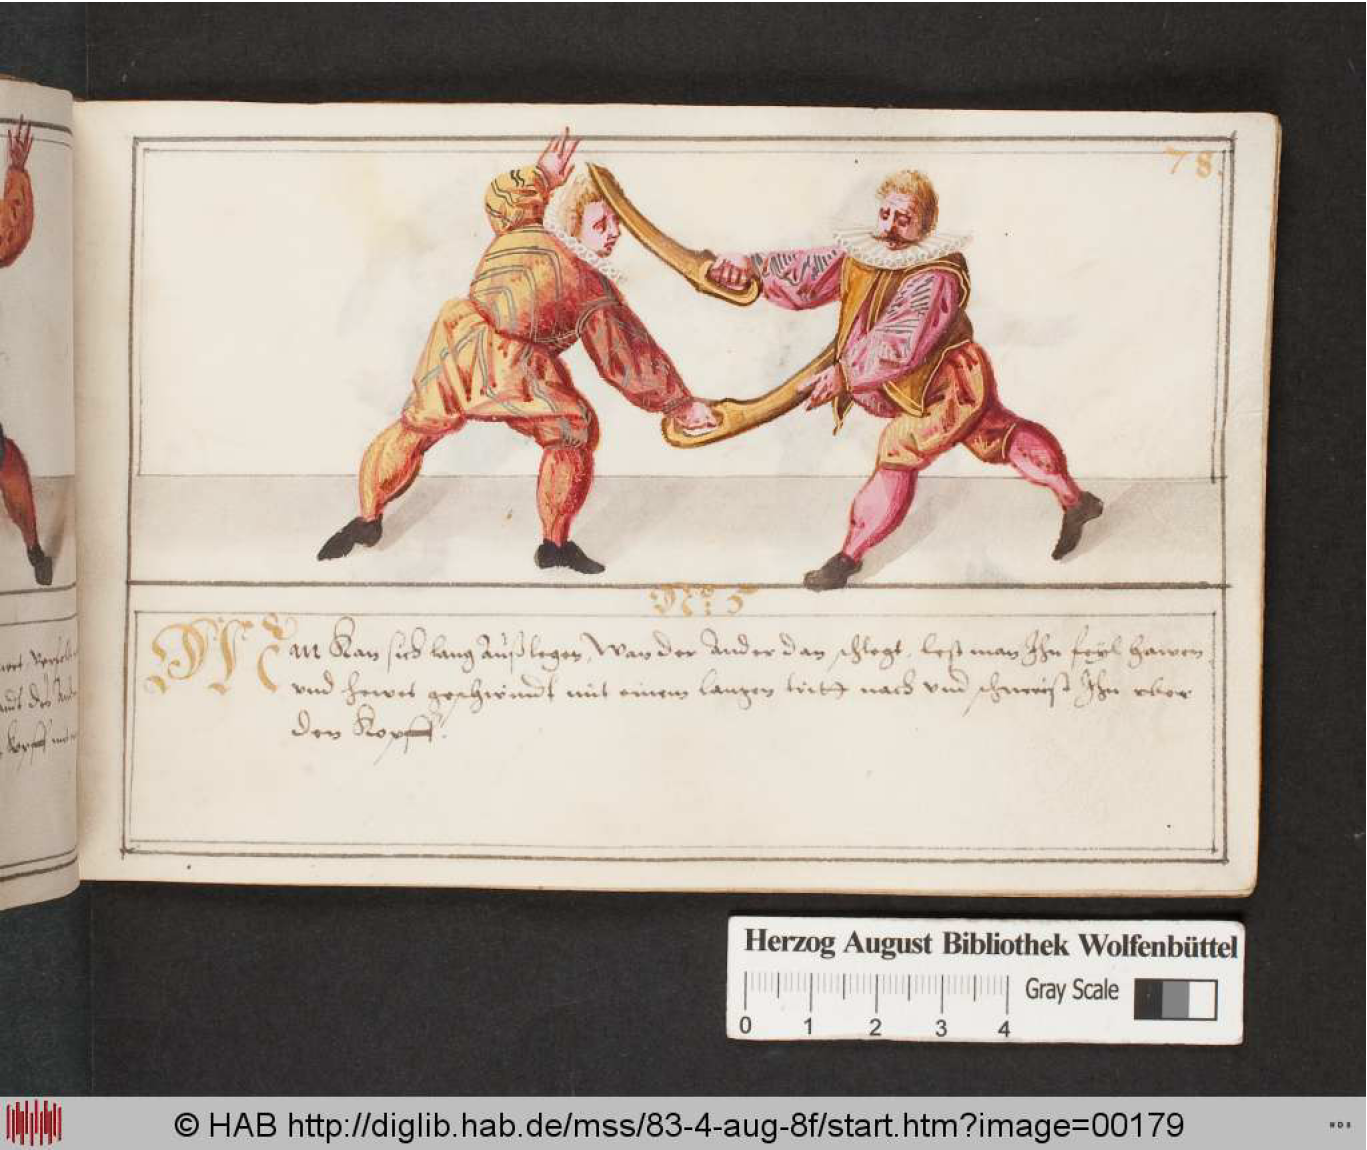 78.
No: 5
Man Kan sich lang Außlegen, Wan der Ander dan schlegt, lest man Ihn feyl hawen,
vnd hewet geschwindt mit einem langen tritt nach vnd schmeist Ihn vber
den Kopff.
Herzog August Bibliothek Wolfenbüttel
Gray Scale
0 1 2 3 4
© HAB http://diglib.hab.de/mss/83-4-aug-8f/start.htm?image=00179